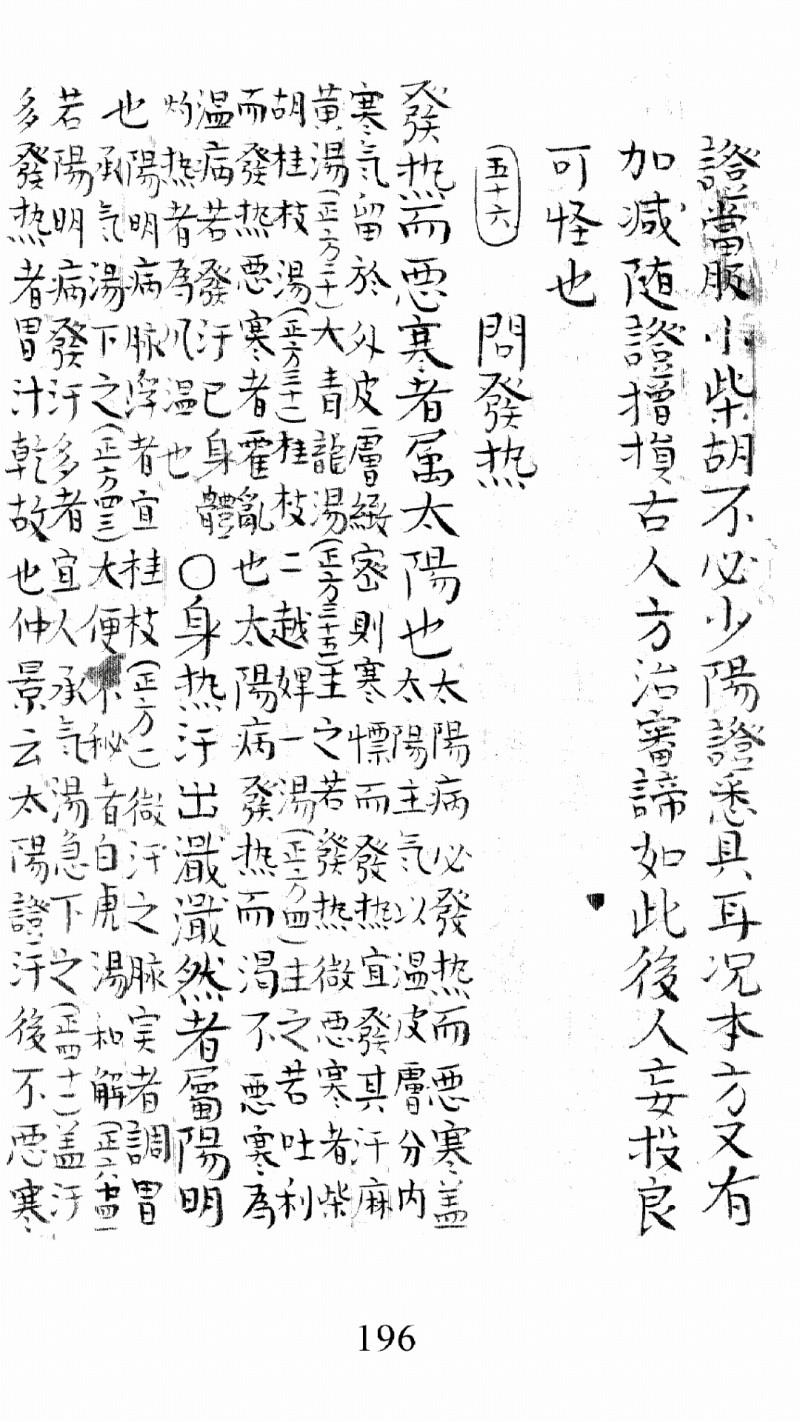 證當服小柴胡不必少陽證悉具耳况本方又有
加减随證增損古人方治審諦如此後人妄投良
可怪也
(五十六) 問發热
發热而悪寒者属太陽也
太陽病必發热而悪寒盖
太陽主气以温皮膚分内
寒气留於外皮膚緻密則寒慄而發热宜發其汗麻
黄湯(正方二十)大青龍湯(正方三十五)主之若發热微悪寒者柴
胡桂枝湯(正方三十一)桂枝二越婢一湯(正方四)主之若吐利
而發热悪寒者霍亂也太陽病發热而渴不悪寒為
温病若發汗已身體
灼热者為风温也
○身热汗出濈濈然者屬陽明
也
陽明病脉浮者宜桂枝(正方一)微汗之脉実者調胃
承气湯下之(正方四三)大便不秘者白虎湯和解(正六十四)
若陽明病發汗多者宜人承气湯急下之(正四十二)盖汗
多發热者胃汁乾故也仲景云太陽證汗後不悪寒
196